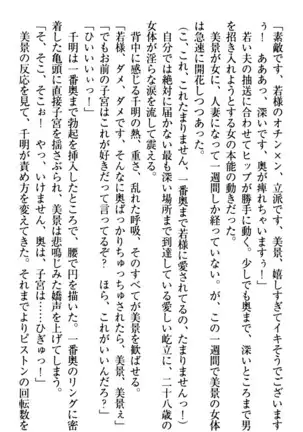 「素敵です、若様のオチン×ン、立派です……美景、嬉しすぎてイキそうでございま
すぅ！ あああっ、深いです、奥が痺れちゃいますぅ！」
若い夫の抽送に合わせてヒップが勝手に動く。少しでも奥まで、深いところまで男
を招き入れようとする女の本能の動きだった。
美景が女に、人妻になって一週間しか経っていない。が、この一週間で美景の女体
は急速に開花しつつあった。
（こ、これ、たまりませんっ。一番奥まで若様に愛されてるの、たまりませんっ！）
自分では絶対に届かない最も深い場所まで到達している愛しい屹立に、二十八歳の
女体が淫らな涙を流して震える。
背中に感じる千明の熱、重さ、乱れた吐息、そのすべてが美景を歓ばせる。
「若様、ダメ、ダメです、そんなに奥ばっかりちゅっちゅされたら、美景、美景ぇ」
「でもお前の子宮は、これが好きだって言ってるぞ？ ほら、これがいいんだろ？」
「ひいいいっ！」
千明は一番奥まで勃起を挿入したところで、腰で円を描いた。一番奥のリングに密
着した亀頭に直接子宮を揺さぶられ、美景は悲鳴じみた嬌声を上げてしまう。
「そ、そこ、そこぉ！ やっ、いけません、奥は、子宮は……ひぎゅっ！」
美景の反応を見て、千明が責め方を変えてきた。それまでよりピストンの回転数を